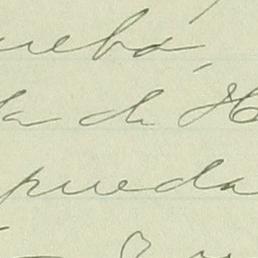 rueba,
la de H
pueda